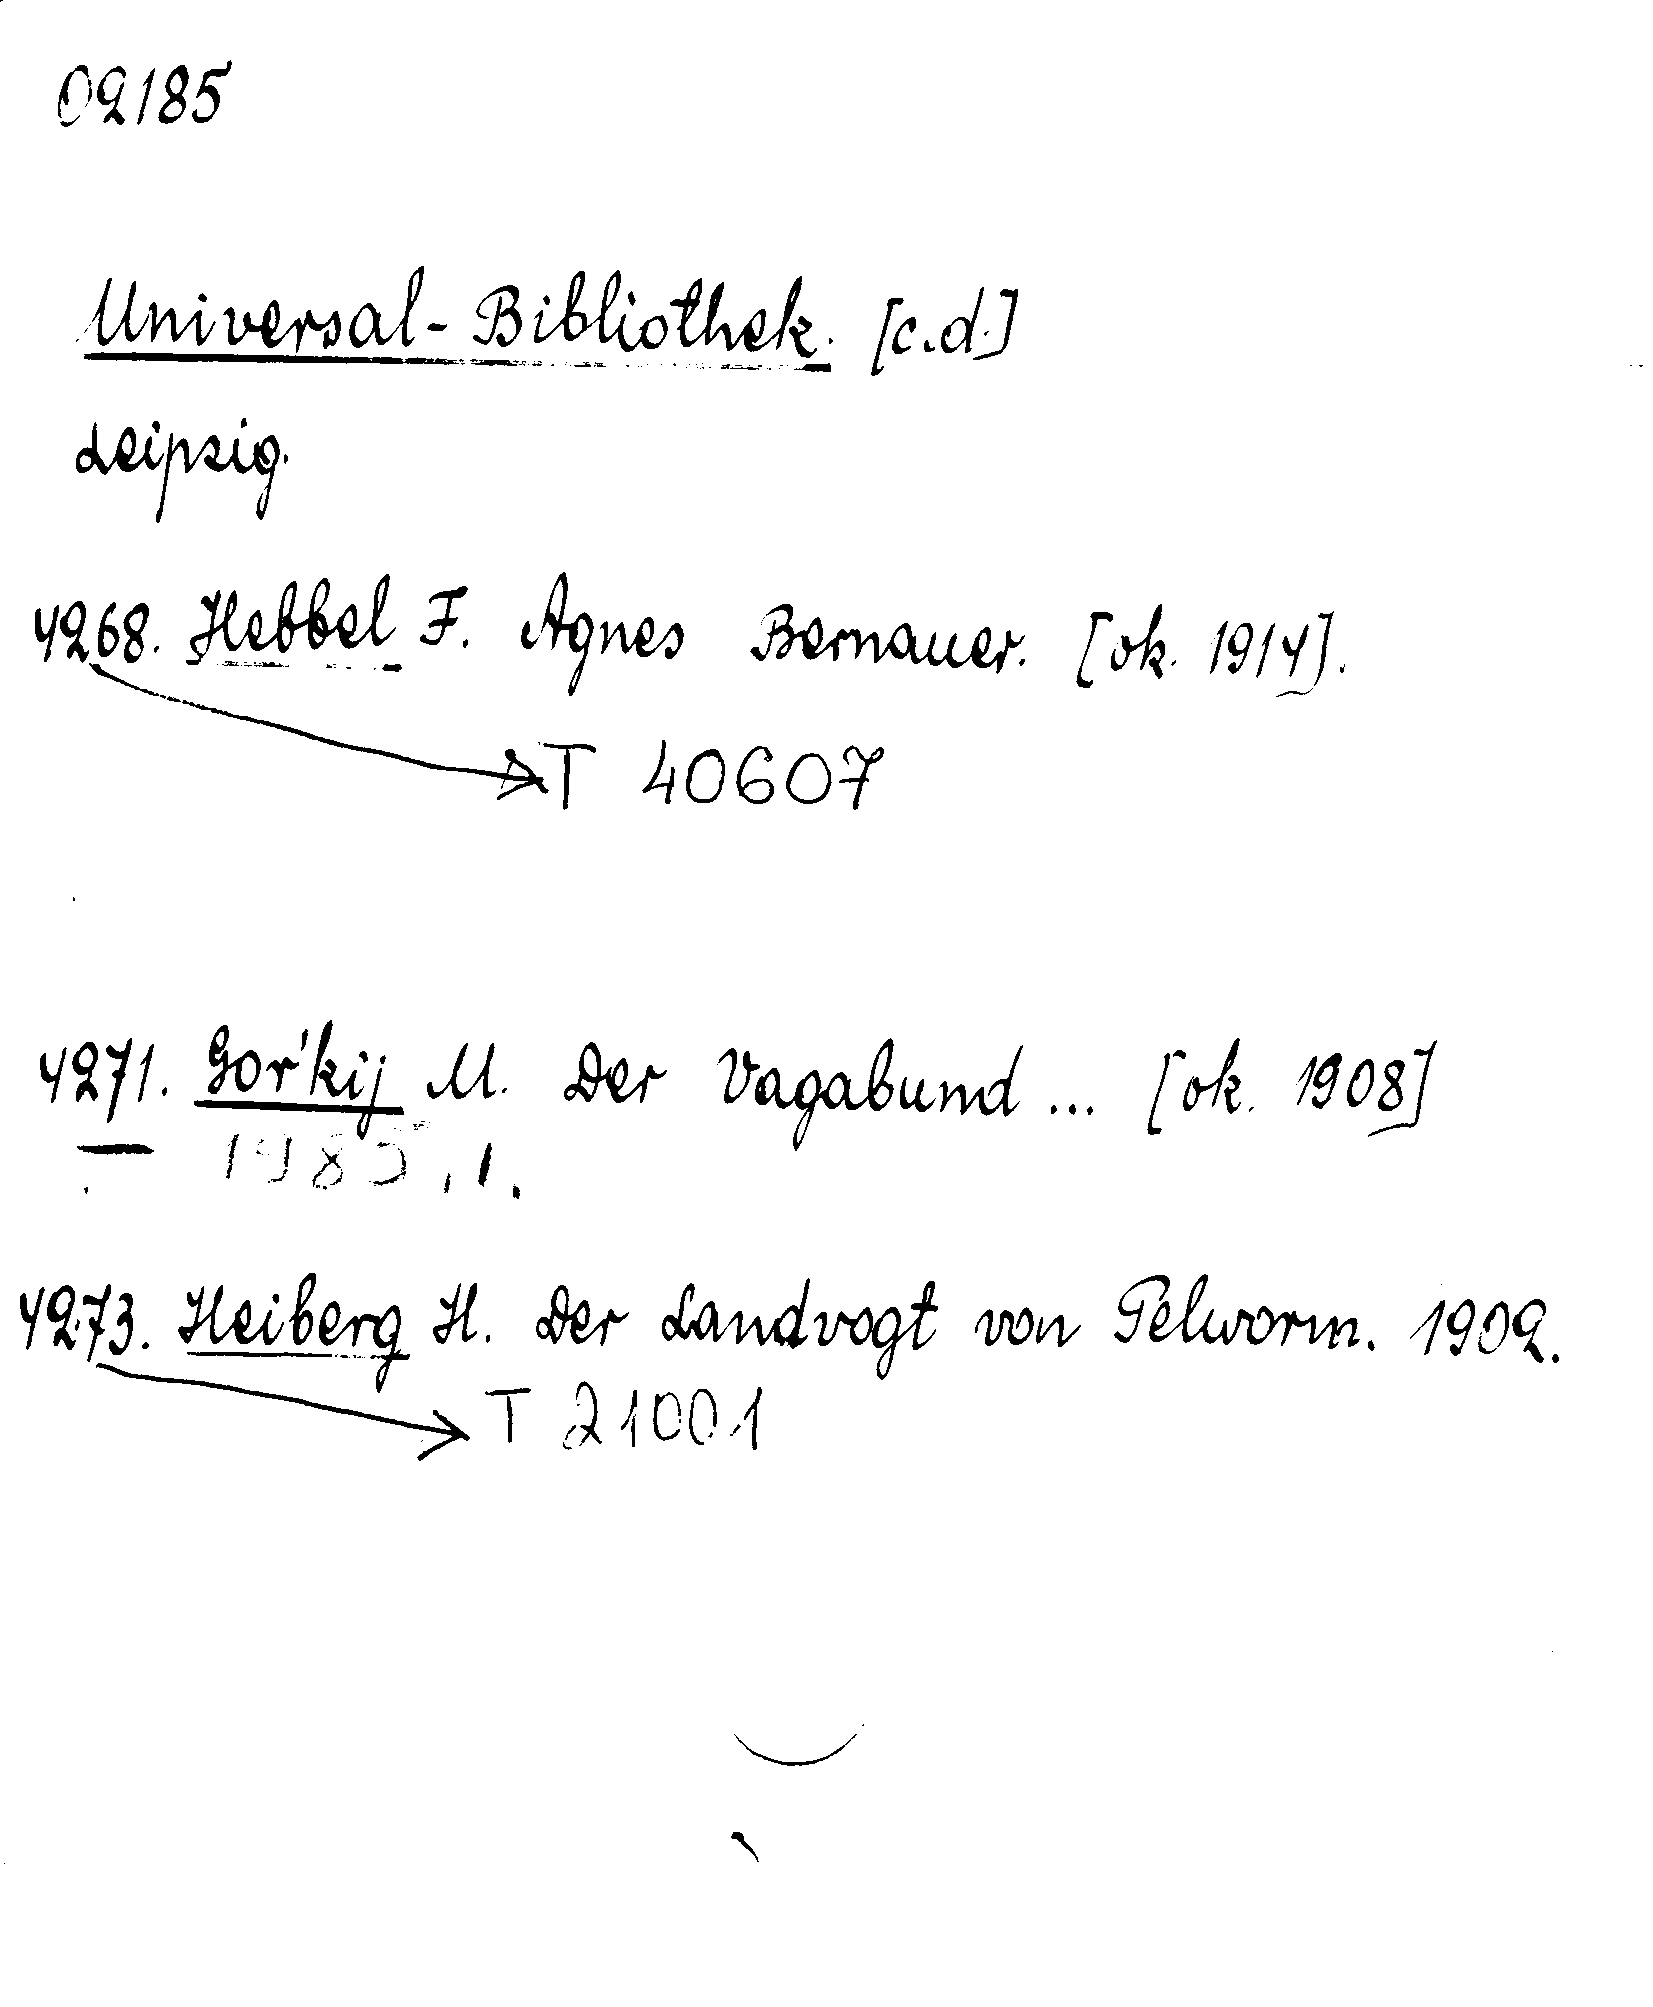 02185
Universal-Bibliothek. [c.d.]
Leipzig.
4268. Hebbel F. Agnes Bernauer. [ok. 1914].
T 40607
4271. Gor'kij M. Der Vagabund ... [ok. 1908]
— 1985.1.
4273. Heiberg H. Der Landvogt von Pelworm. 1902.
T 21001